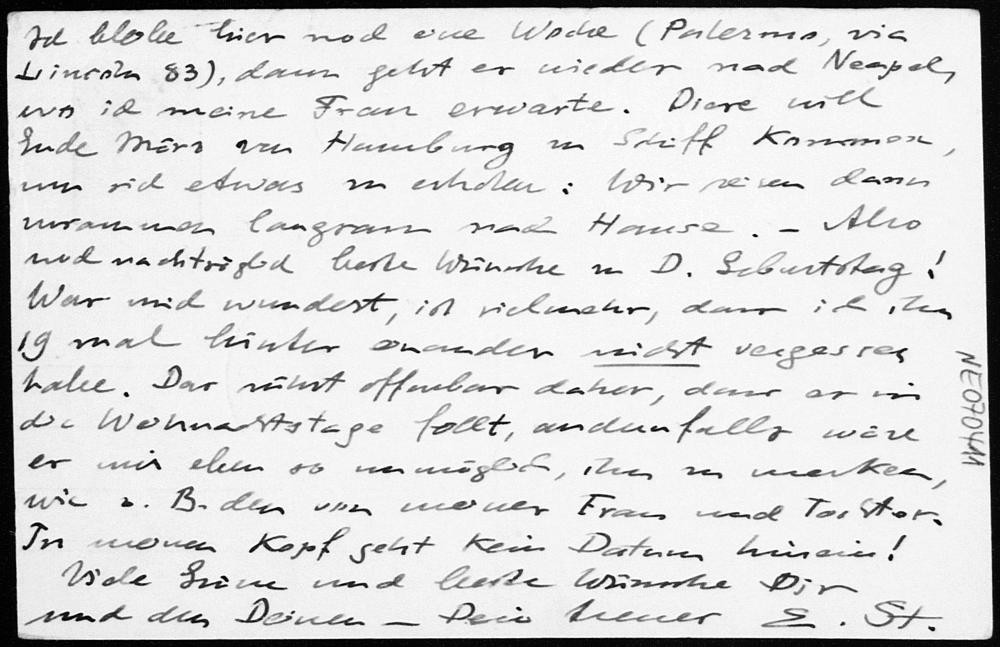 Ich bleibe hier noch eine Woche (Palermo, via
Lincoln 83), dann geht es wieder nach Neapel,
wo ich meine Frau erwarte. Diese will
Ende März von Hamburg zu Schiff kommen,
um sich etwas zu erholen: Wir reisen dann
zusammen langsam nach Hause. – Also
noch nachträglich beste Wünsche zu D. Geburtstag!
Was mich wundert, ist vielmehr, dass ich ihn
19 mal hinter einander nicht vergessen
habe. Das rührt offenbar daher, dass er in
die Weihnachtstage fällt, andernfalls wäre
er mir eben so unmöglich, ihn zu merken,
wie z. B. den von meiner Frau und Tochter.
In meinen Kopf geht kein Datum hinein!
Viele Grüsse und beste Wünsche Dir
und den Deinen – Dein treuer E. St.
NE070411